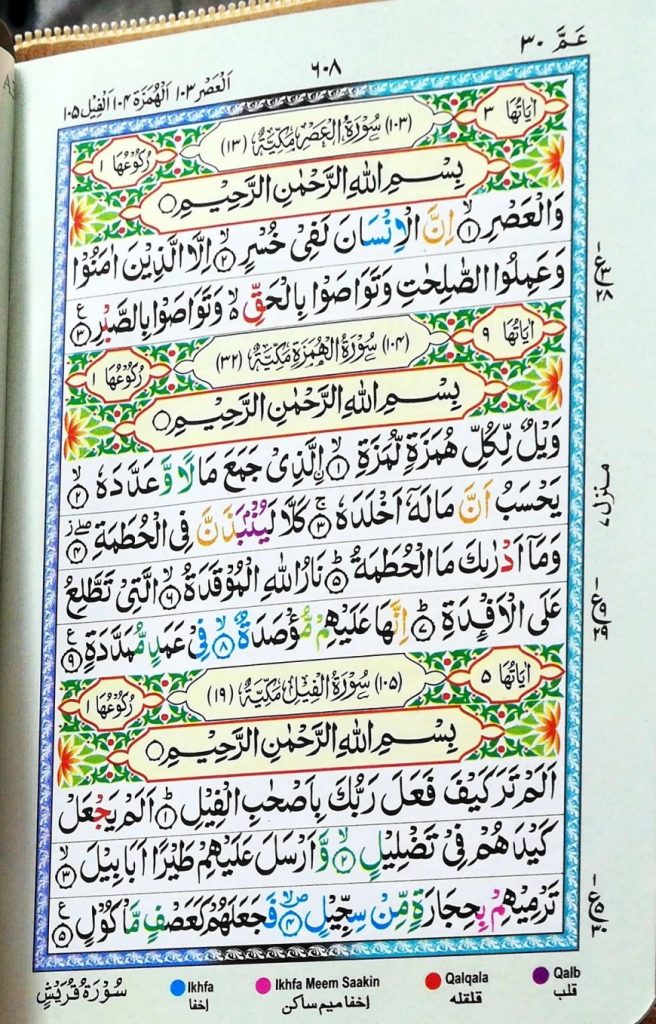 عَمَّ ٣٠
٦٠٨
اَلْعَصْر ١٠٣ اَلْهُمَزَة ١٠٤ اَلْفِيْل ١٠٥
اٰيَاتُهَا ٣
(١٠٣) سُوْرَةُ الْعَصْرِ مَكِّيَّةٌ (١٣)
رُكُوْعُهَا ١
بِسْمِ اللهِ الرَّحْمٰنِ الرَّحِيْمِ
وَالْعَصْرِ ۙ﴿١﴾ اِنَّ الْاِنْسَانَ لَفِيْ خُسْرٍ ۙ﴿٢﴾ اِلَّا الَّذِيْنَ اٰمَنُوْا
وَعَمِلُوا الصّٰلِحٰتِ وَتَوَاصَوْا بِالْحَقِّ ۙ۬ وَتَوَاصَوْا بِالصَّبْرِ ﴿٣﴾ ع
اٰيَاتُهَا ٩
(١٠٤) سُوْرَةُ الْهُمَزَةِ مَكِّيَّةٌ (٣٢)
رُكُوْعُهَا ١
بِسْمِ اللهِ الرَّحْمٰنِ الرَّحِيْمِ
وَيْلٌ لِّكُلِّ هُمَزَةٍ لُّمَزَةِ ۙ﴿١﴾ اۨلَّذِيْ جَمَعَ مَالًا وَّعَدَّدَهٗ ۙ﴿٢﴾
يَحْسَبُ اَنَّ مَالَهٗۤ اَخْلَدَهٗ ۚ﴿٣﴾ كَلَّا لَيُنْۢبَذَنَّ فِى الْحُطَمَةِ ﴿٤﴾
وَمَاۤ اَدْرٰىكَ مَا الْحُطَمَةُ ؕ﴿٥﴾ نَارُ اللهِ الْمُوْقَدَةُ ۙ﴿٦﴾ الَّتِيْ تَطَّلِعُ
عَلَى الْاَفْـِٕدَةِ ؕ﴿٧﴾ اِنَّهَا عَلَيْهِمْ مُّؤْصَدَةٌ ۙ﴿٨﴾ فِيْ عَمَدٍ مُّمَدَّدَةٍ ﴿٩﴾ ع
اٰيَاتُهَا ٥
(١٠٥) سُوْرَةُ الْفِيْلِ مَكِّيَّةٌ (١٩)
رُكُوْعُهَا ١
بِسْمِ اللهِ الرَّحْمٰنِ الرَّحِيْمِ
اَلَمْ تَرَ كَيْفَ فَعَلَ رَبُّكَ بِاَصْحٰبِ الْفِيْلِ ؕ﴿١﴾ اَلَمْ يَجْعَلْ
كَيْدَهُمْ فِيْ تَضْلِيْلٍ ۙ﴿٢﴾ وَّاَرْسَلَ عَلَيْهِمْ طَيْرًا اَبَابِيْلَ ۙ﴿٣﴾
تَرْمِيْهِمْ بِحِجَارَةٍ مِّنْ سِجِّيْلٍ ۪ۙ﴿٤﴾ فَجَعَلَهُمْ كَعَصْفٍ مَّاْكُوْلٍ ﴿٥﴾ ع
ع ٣ ٢٨
منزل ٧
ع ٩ ٢٩
ع ٥ ٣٠
Ikhfa
اخفا
Ikhfa Meem Saakin
اخفا میم ساکن
Qalqala
قلقله
Qalb
قلب
سُوْرَةُ قُرَيْشٍ